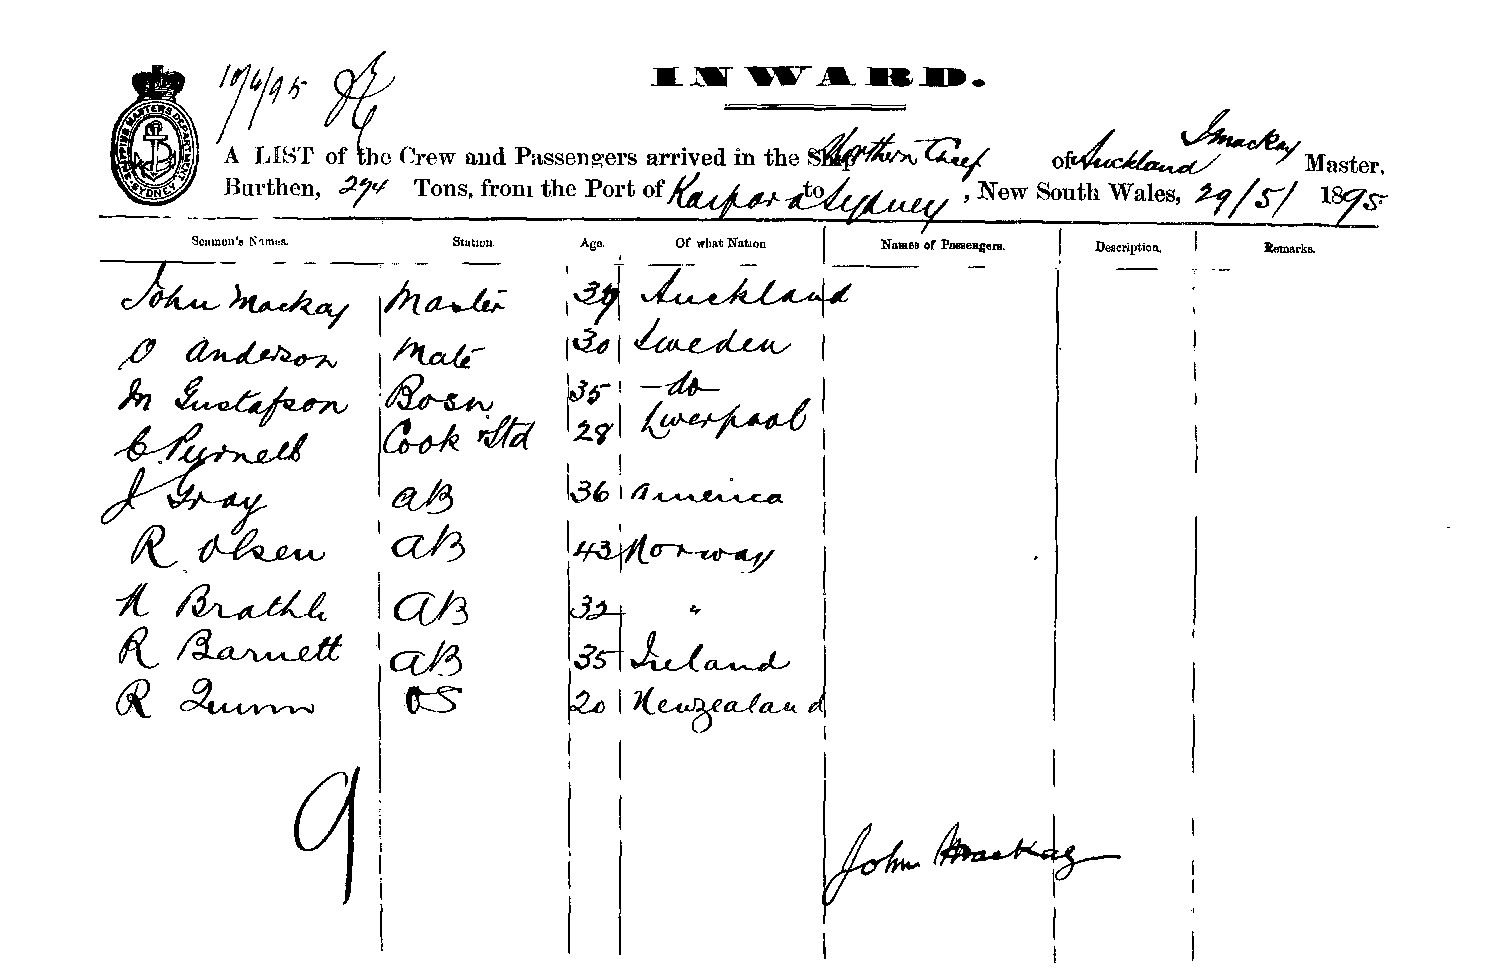 10/6/95
INWARD.
SHIPPING MASTERS DEPARTMENT SYDNEY
A LIST of the Crew and Passengers arrived in the Ship Northern Chief of Auckland J Mackay Master,
Burthen, 294 Tons, from the Port of Kaipara to Sydney, New South Wales, 29/5/ 1895
Seamen's Names. Station. Age. Of what Nation Names of Passengers. Description. Remarks.
John Mackay Master 39 Auckland
O Anderson Mate 30 Sweden
M Gustafson Bosn 35 - do -
C Purnell Cook & Std 28 Liverpool
J Gray AB 36 America
R Olsen AB 43 Norway
N AB 32 "
R Barnett AB 35 Ireland
R Quinn OS 20 Newzealand
9
John Mackay